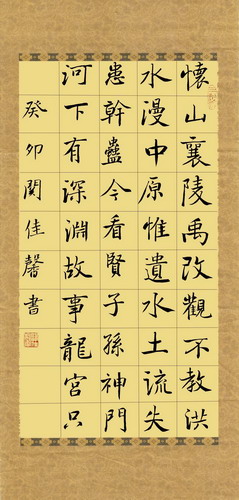 懷山襄陵禹改觀不教洪
水漫中原惟遺水土流失
患幹蠱今看賢子孫神門
河下有深淵故事龍宮只
癸卯佳馨書